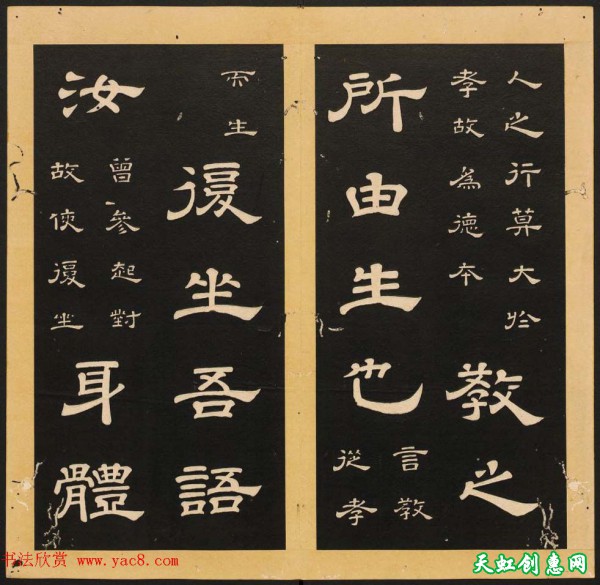 人之行莫大於
孝故為德本
教之
所由生也
言教
從孝
而生
復坐吾語
汝
曾參起對
故使復坐
身體
书法欣赏 www.yac8.com
天虹创惠网